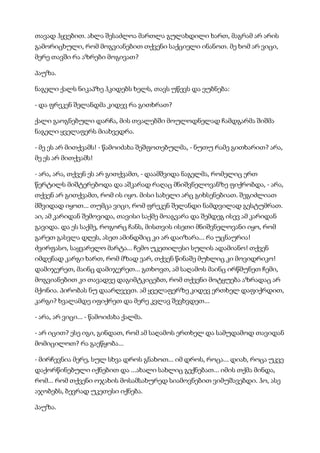 თავად ჰყვებით. ახლა შესაძლოა მართლა გულახდილი ხართ, მაგრამ არ არის
გამორიცხული, რომ მოგვიანებით თქვენი საქციელი ინანოთ. მე ხომ არ ვიცი,
მერე თავში რა აზრები მოგივათ?
პაუზა.
ნაგელი ქალს ნიკაპზე ჰკიდებს ხელს, თავს უწევს და ეუბნება:
- და ფრეკენ შელანდმა კიდევ რა გითხრათ?
ქალი გაოგნებული დარჩა, მის თვალებში მოულოდნელად ჩამდგარმა შიშმა
ნაგელი ყველაფერს მიახვედრა.
- მე ეს არ მითქვამს! - წამოიძახა შეშფოთებულმა, - ნუთუ რამე გითხარით? არა,
მე ეს არ მითქვამს!
- არა, არა, თქვენ ეს არ გითქვამთ, - დააშშვიდა ნაგელმა, რომელიც ერთ
წერტილს მიშტერებოდა და აშკარად რაღაც მნიშვნელოვანზე ფიქრობდა, - არა,
თქვენ არ გითქვამთ, რომ ის იყო. მისი სახელი არც გიხსენებიათ. შეგიძლიათ
მშვიდად იყოთ... თუმცა ვიცი, რომ ფრეკენ შელანდი ნამდვილად გესტუმრათ.
აი, ამ კარიდან შემოვიდა, თავისი საქმე მოაგვარა და შემდეგ ისევ ამ კარიდან
გავიდა. და ეს საქმე, როგორც ჩანს, მისთვის ისეთი მნიშვნელოვანი იყო, რომ
გარეთ გასვლა დღეს, ასეთ ამინდშიც კი არ დაიზარა... რა უცნაურია!
ძვირფასო, საყვარელო მარტა... ჩემო უკეთილესი სულის ადამიანო! თქვენ
იმდენად კარგი ხართ, რომ მზად ვარ, თქვენ წინაშე მუხლიც კი მოვიდრიკო!
დამიჯერეთ, მაინც დამიჯერეთ... გთხოვთ, ამ საღამოს მაინც ირწმუნეთ ჩემი,
მოგვიანებით კი თავადვე დაგიმტკიცებთ, რომ თქვენი მოტყუება აზრადაც არ
მქონია. პირობას ნუ დაარღვევთ. ამ ყველაფერზე კიდევ ერთხელ დაფიქრდით,
კარგი? ხვალამდე იფიქრეთ და მერე კვლავ შევხვდეთ...
- არა, არ ვიცი... - წამოიძახა ქალმა.
- არ იცით? ესე იგი, გინდათ, რომ ამ საღამოს ერთხელ და სამუდამოდ თავიდან
მომიცილოთ? რა გაეწყობა...
- მირჩევნია მერე, სულ სხვა დროს გნახოთ... იმ დროს, როცა... დიახ, როცა უკვე
დაქორწინებული იქნებით და ...ახალი სახლიც გექნებათ... იმის თქმა მინდა,
რომ... რომ თქვენი ოჯახის მოსამსახურედ სიამოვნებით ვიმუშავებდი. ჰო, ასე
აჯობებს, ბევრად უკეთესი იქნება.
პაუზა.